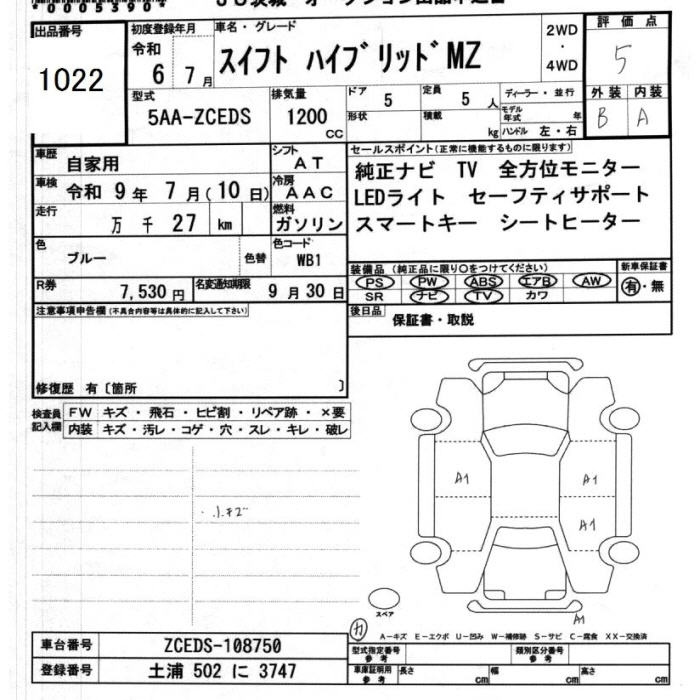 *0005390*
出品番号 1022
初度登録年月 令和 6年 7月
車名・グレード スイフト ハイブリッドMZ
2WD ・ 4WD
評価点 5
外装 B 内装 A
型式 5AA-ZCEDS
排気量 1200 cc
ドア 5 定員 5 人
形状 積載 kg
ディーラー・並行
モデル年式 年
ハンドル 左・右
車歴 自家用
シフト AT
車検 令和 9年 7月(10日)
冷房 AAC
走行 万 千 27 km
燃料 ガソリン
色 ブルー 色替
色コード WB1
R券 7,530円
名変通知期限 9月30日
セールスポイント(正常に機能するものに限ります)
純正ナビ TV 全方位モニター
LEDライト セーフティサポート
スマートキー シートヒーター
装備品(純正品に限り○をつけてください)
PS PW ABS エアB AW
SR ナビ TV カワ
新車保証書 有・無
後日品 保証書・取説
注意事項申告欄(不具合内容等は具体的に記入して下さい)
修復歴 有〔箇所 〕
検査員記入欄
FW キズ・飛石・ヒビ割・リペア跡・×要
内装 キズ・汚レ・コゲ・穴・スレ・キレ・破レ
・小キズ
A1
A1
A1
A1
スペア
カ
A−キズ E−エクボ U−凹み W−補修跡 S−サビ C−腐食 XX−交換済
車台番号 ZCEDS-108750
登録番号 土浦 502 に 3747
型式指定番号 参考
類別区分番号 参考
車庫証明用 参考 長さ cm 幅 cm 高さ cm